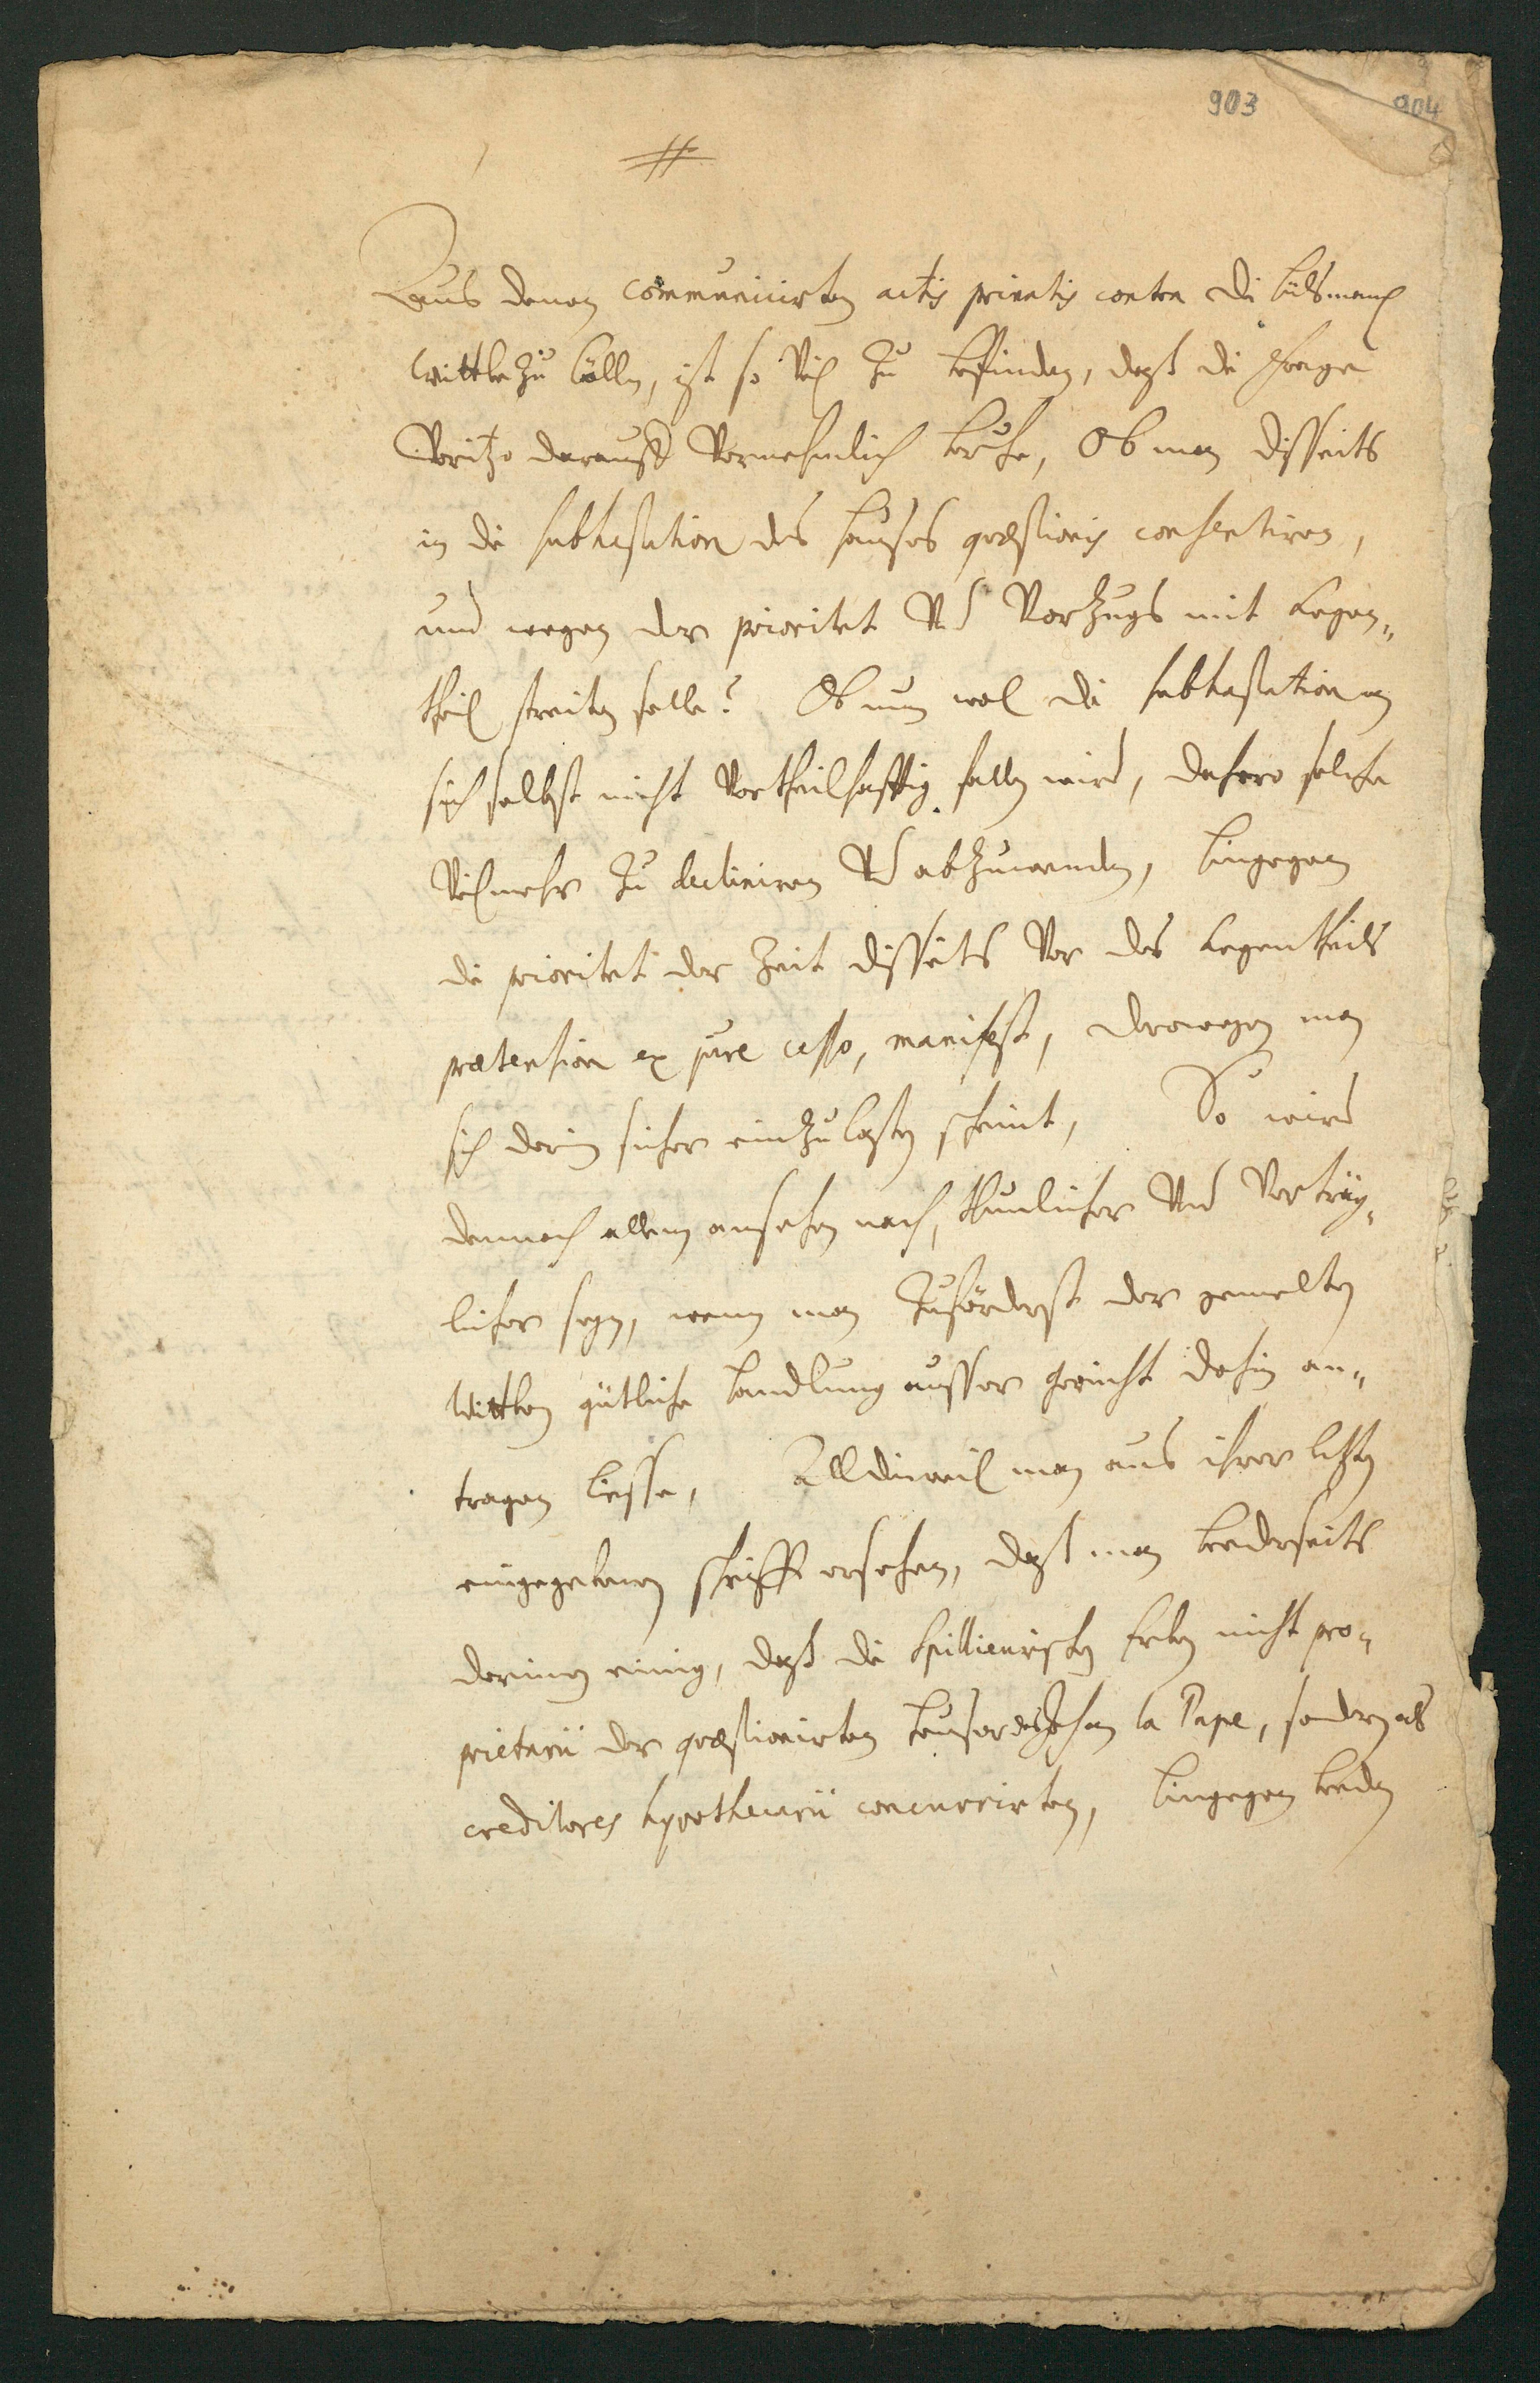 903
904
Aus denen communicirten actis privatis contra die Hülsman
Wittbe zu Cölln, ist so viel zu befinden, dasz die Frage
voritzo darauff vornehmlich beruhe, Ob man disseits
in die subhastation des Hauses quæstionis consentiren,
und wegen der prioritet und Vorzugs mit Gegen„
theil streiten solle? Ob nun wol die subhastation an
sich selbst nicht vortheilhafftig fallen wird, dahero solche
vielmehr zu decliniren und abzuwenden, hingegen
die prioritet der Zeit disseits vor des Gegentheils
prætension ex jure cesso, manifest, derowegen man
sich darin sicher einzulassen scheint, So wird
dennoch allem ansehen nach, thunlicher und verträg„
licher seyn, wenn man zuförderst der gemelten
Wittben gütliche Handlung ausser Gericht dahin an„
tragen liesse, Alldieweil man aus ihrer letzten
eingegebenen Schrifft ersehen, dasz man beederseits
darinnen einig, dasz die Erben nicht pro„
prietarii der quæstionirten Hauser des Johan la Pape, sondern als
creditores hypothecarii concurrirten, hingegen beeden